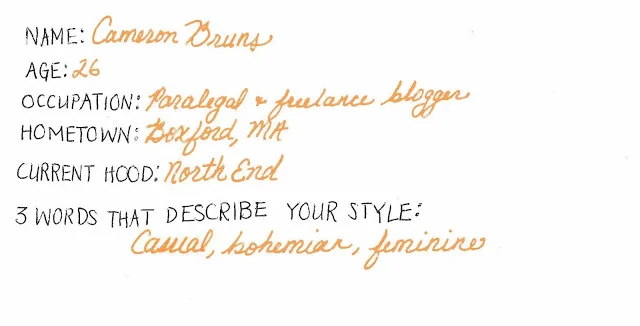 NAME: Cameron Bruns
AGE: 26
OCCUPATION: Paralegal & freelance blogger
HOMETOWN: Boxford, MA
CURRENT HOOD: North End
3 WORDS THAT DESCRIBE YOUR STYLE:
Casual, bohemian, feminine